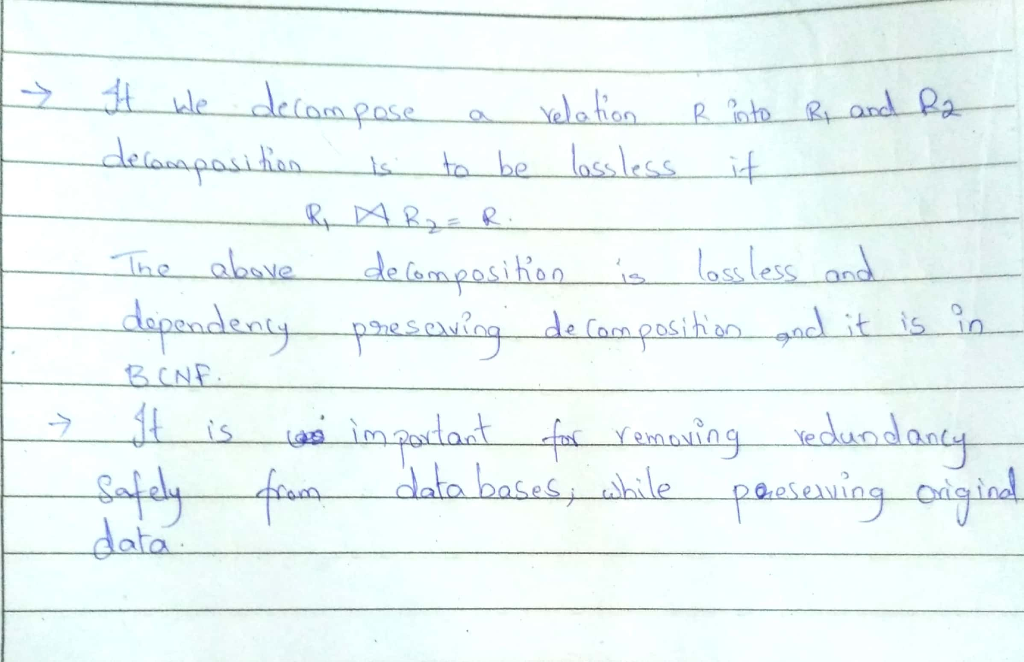 → If we decompose a relation R into R₁ and R₂
decomposition is to be lossless if
R₁ ⋈ R₂ = R.
The above decomposition is lossless and
dependency preserving decomposition and it is in
BCNF.
→ It is important for removing redundancy
Safely from databases, while preserving original
data.